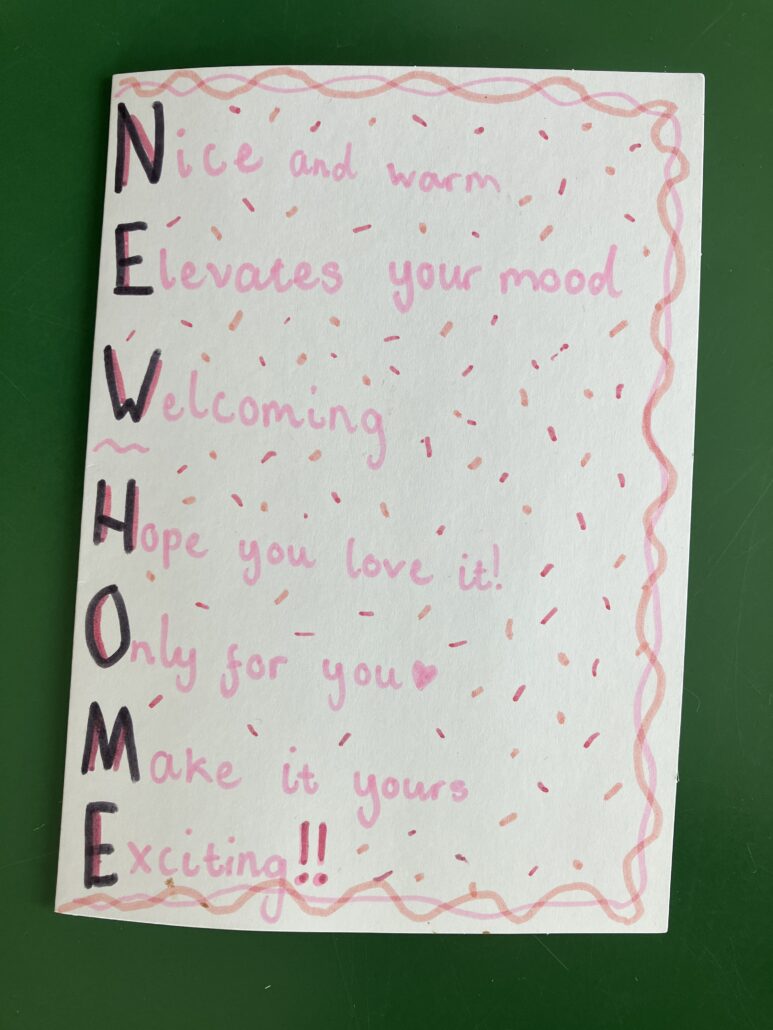 Nice and warm
Elevates your mood
Welcoming
Hope you love it!
Only for you
Make it yours
Exciting!!